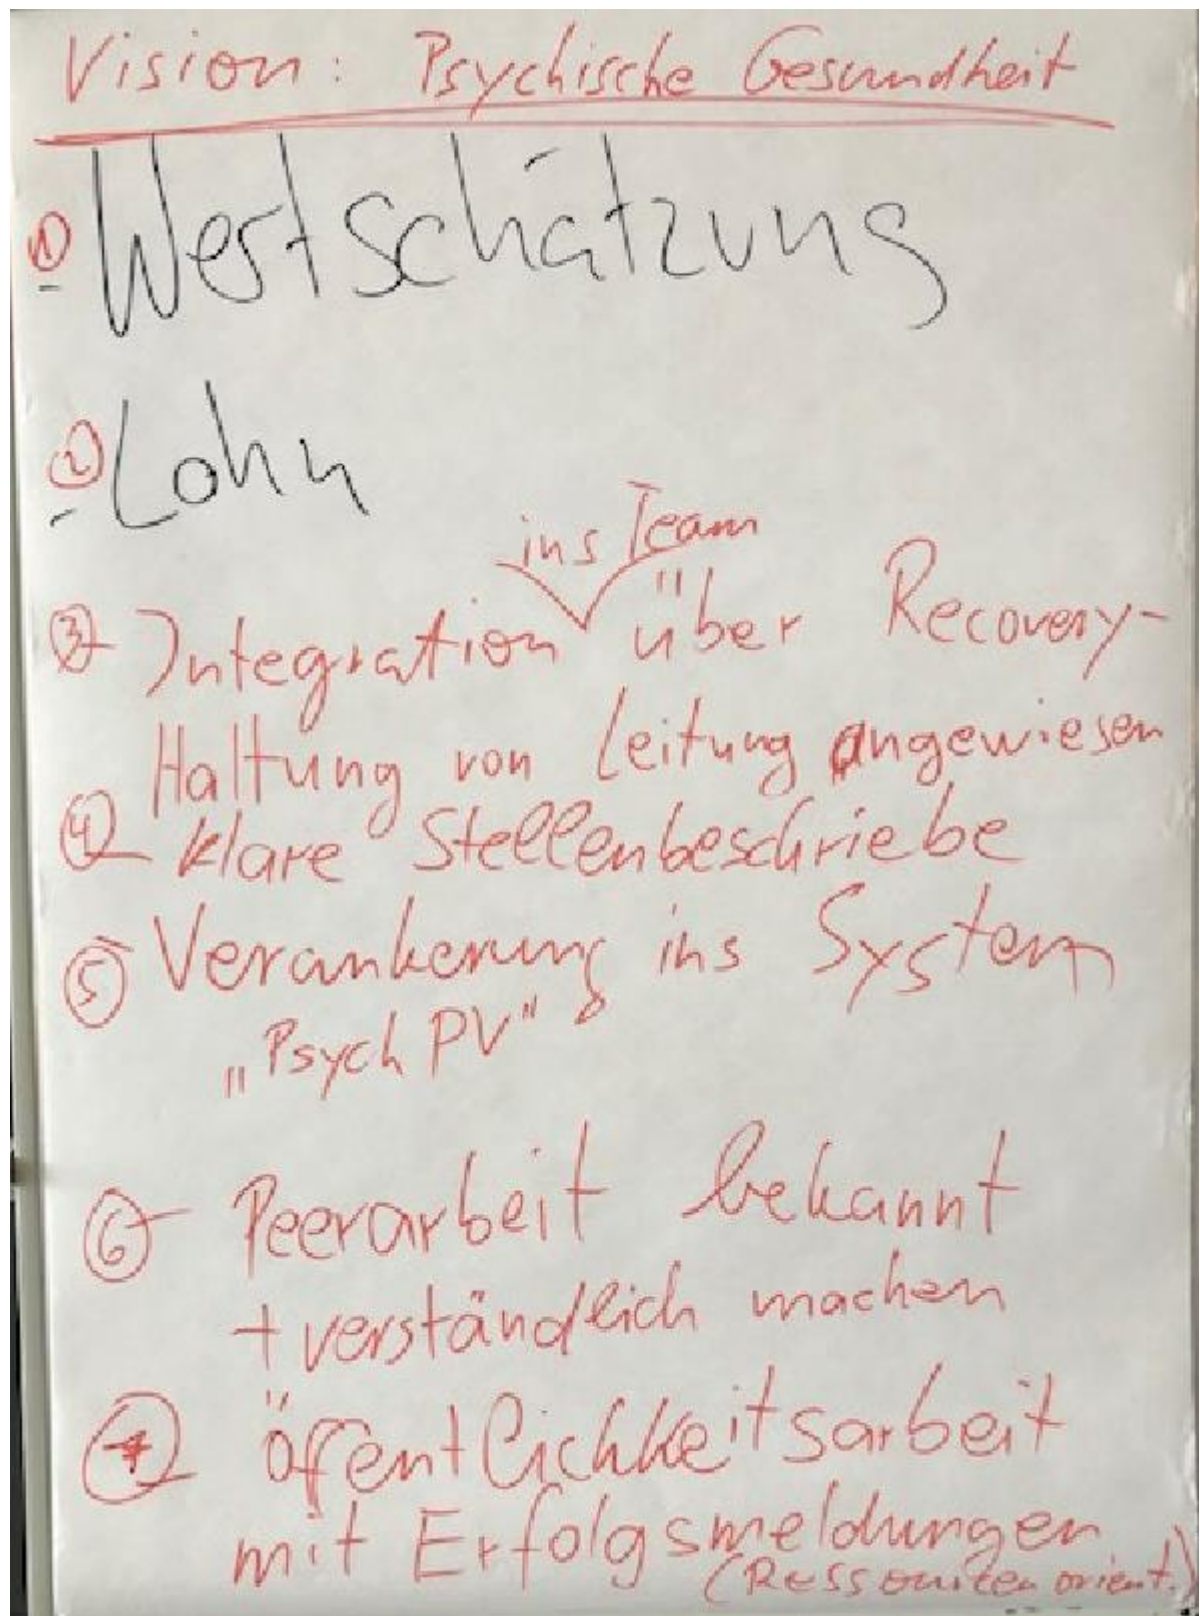 Vision: Psychische Gesundheit
① Wertschätzung
② Lohn
ins Team
③ Integration über Recovery-
Haltung von Leitung angewiesen
④ klare Stellenbeschriebe
⑤ Verankerung ins System
„Psych PV"
⑥ Peerarbeit bekannt
+ verständlich machen
⑦ öffentlichkeitsarbeit
mit Erfolgsmeldungen
(Ressourcen orient.)